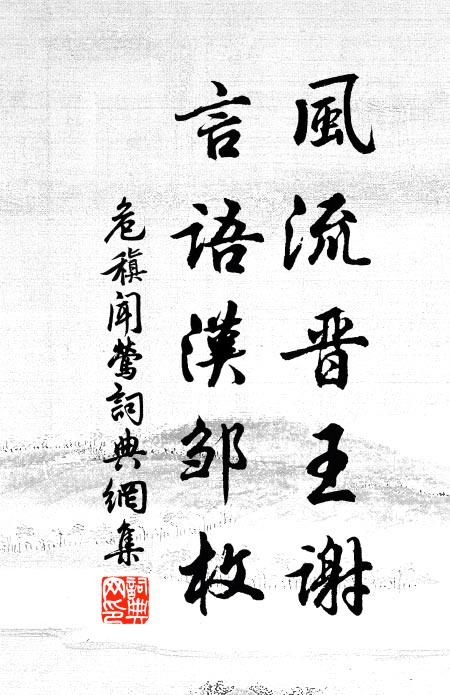 風流晋王謝
言語漢邹枚
危稹闻莺詞典網集
詞典